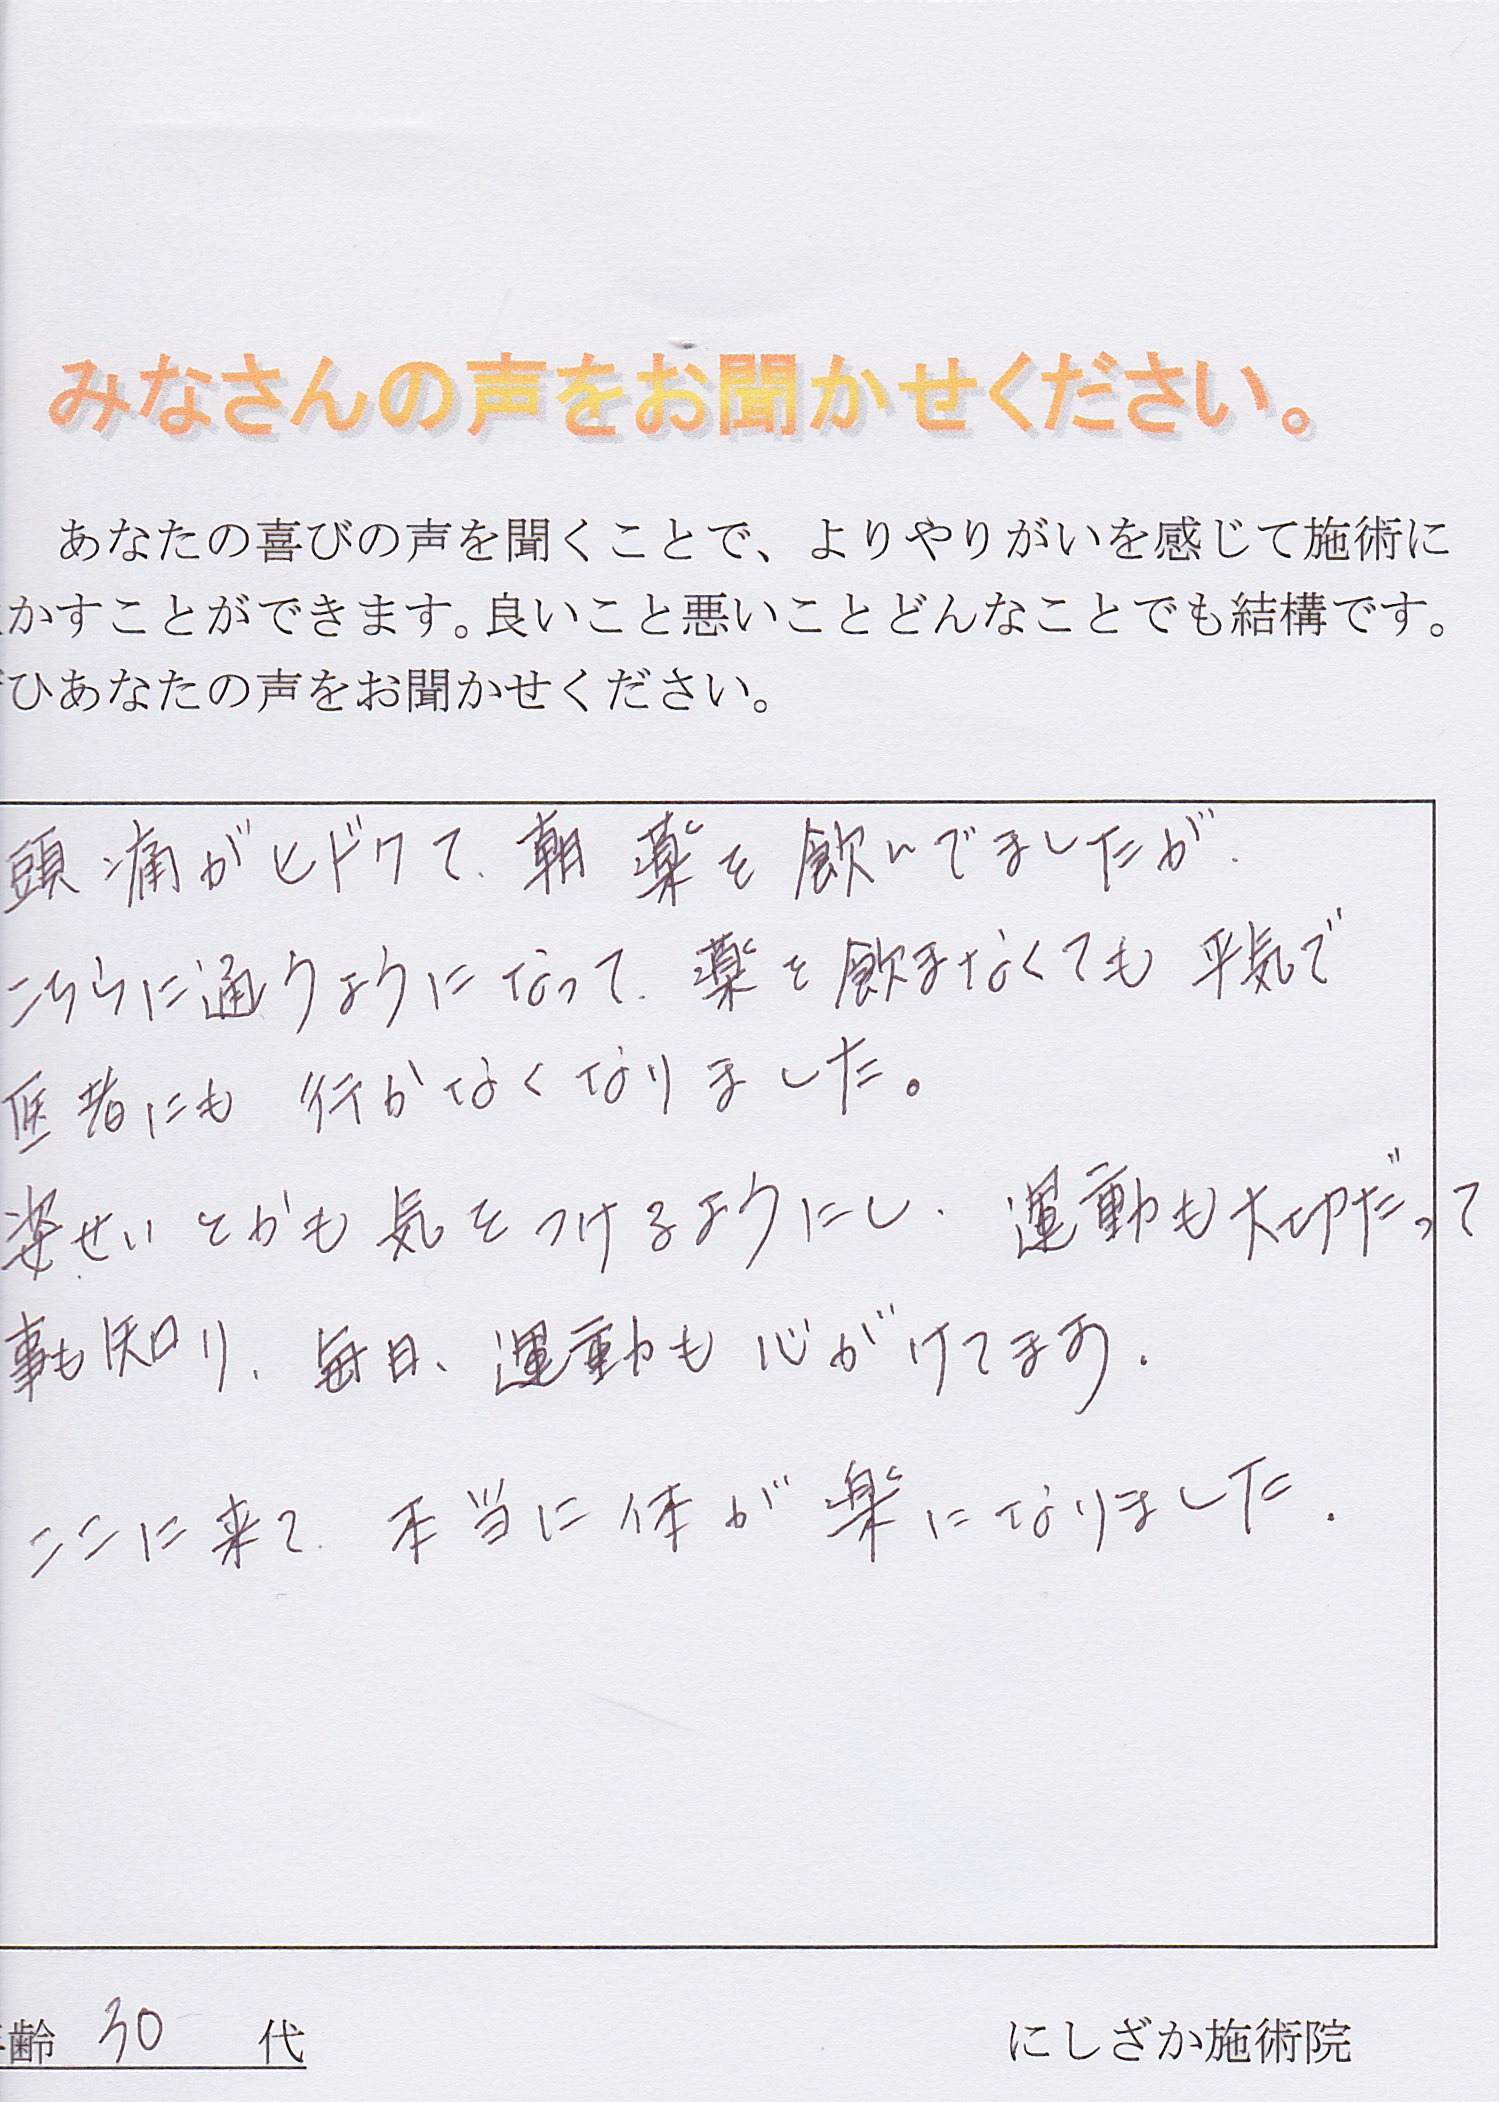 みなさんの声をお聞かせください。
あなたの喜びの声を聞くことで、よりやりがいを感じて施術に
かすことができます。良いこと悪いことどんなことでも結構です。
ひあなたの声をお聞かせください。
頭痛がヒドクて、朝薬を飲んでましたが、
こちらに通うようになって、薬を飲まなくても平気で
医者にも行かなくなりました。
姿せいとかも気をつけるようにし、運動も大切だって
事も知り、毎日、運動も心がけてます。
ここに来て、本当に体が楽になりました。
齢 30 代
にしざか施術院